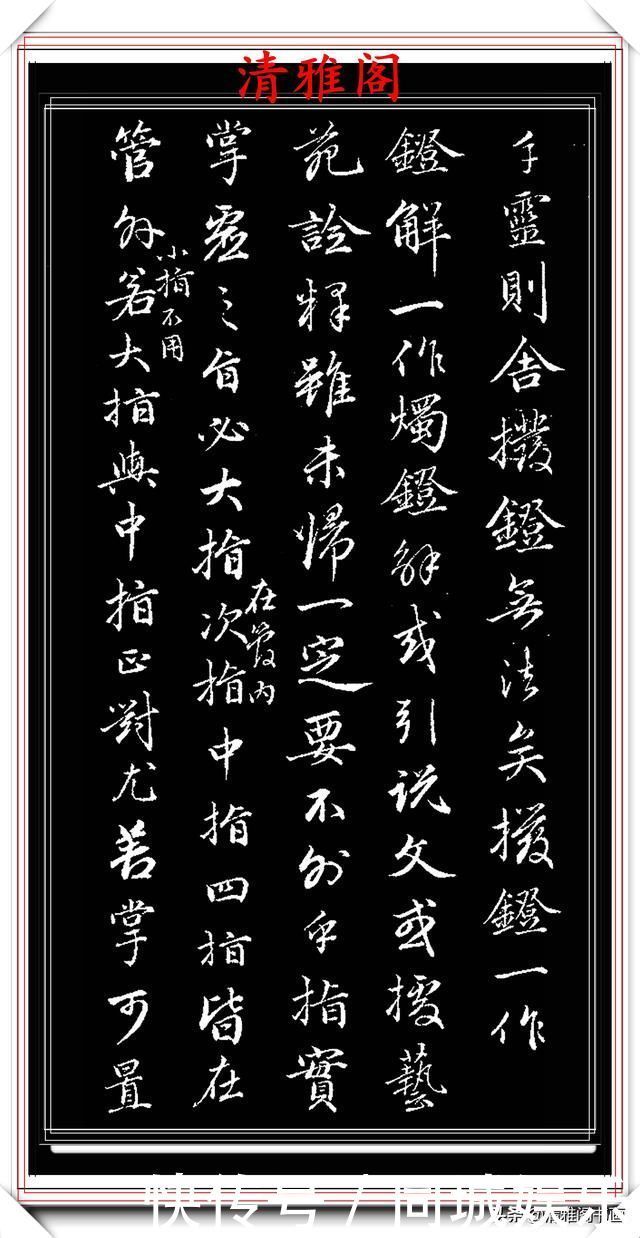 清雅阁
手靈則舍撥鐙無法矣撥鐙一作
鐙解一作燭鐙解或引説文或據藝
苑詮釋雖未歸一定要不外乎指實
掌虛之旨必大指次指中指四指皆在
在管内
管外若大指與中指正對尤善掌可置
小指不用
快传号/同城娱
头条@清雅阁书画